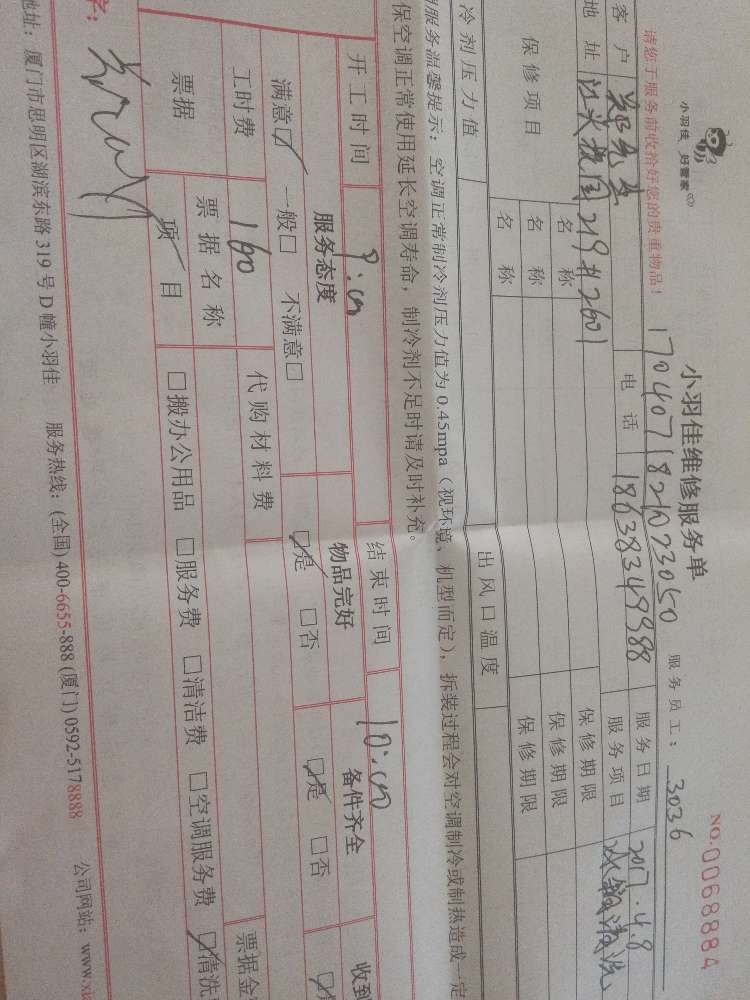 小羽佳 好管家
小羽佳维修服务单
NO.0068884
请您于服务前收拾好您的贵重物品！
1704071821073050
服务员工： 3036
客户 郑先生 电话 18638349988 服务日期 2017.4.8
地址 江头振国219#2601 服务项目 冰箱清洗
保修项目 名称 保修期限
名称 保修期限
名称 保修期限
冷剂压力值 出风口温度
服务温馨提示：空调正常制冷剂压力值为 0.45mpa（视环境、机型而定），拆装过程会对空调制冷或制热造成一定
保空调正常使用延长空调寿命，制冷剂不足时请及时补充。
开工时间 9:00 结束时间 10:00
服务态度 物品完好 备件齐全 收到
满意☑ 一般□ 不满意□ ☑是 □否 ☑是 □否
工时费 160 代购材料费
票据 票据名称 票据金
项目 □搬办公用品 □服务费 □清洁费 □空调服务费 ☑清洗
字：
地址：厦门市思明区湖滨东路 319 号 D 幢小羽佳 服务热线：(全国) 400-6655-888 (厦门) 0592-5178888 公司网站：www.x